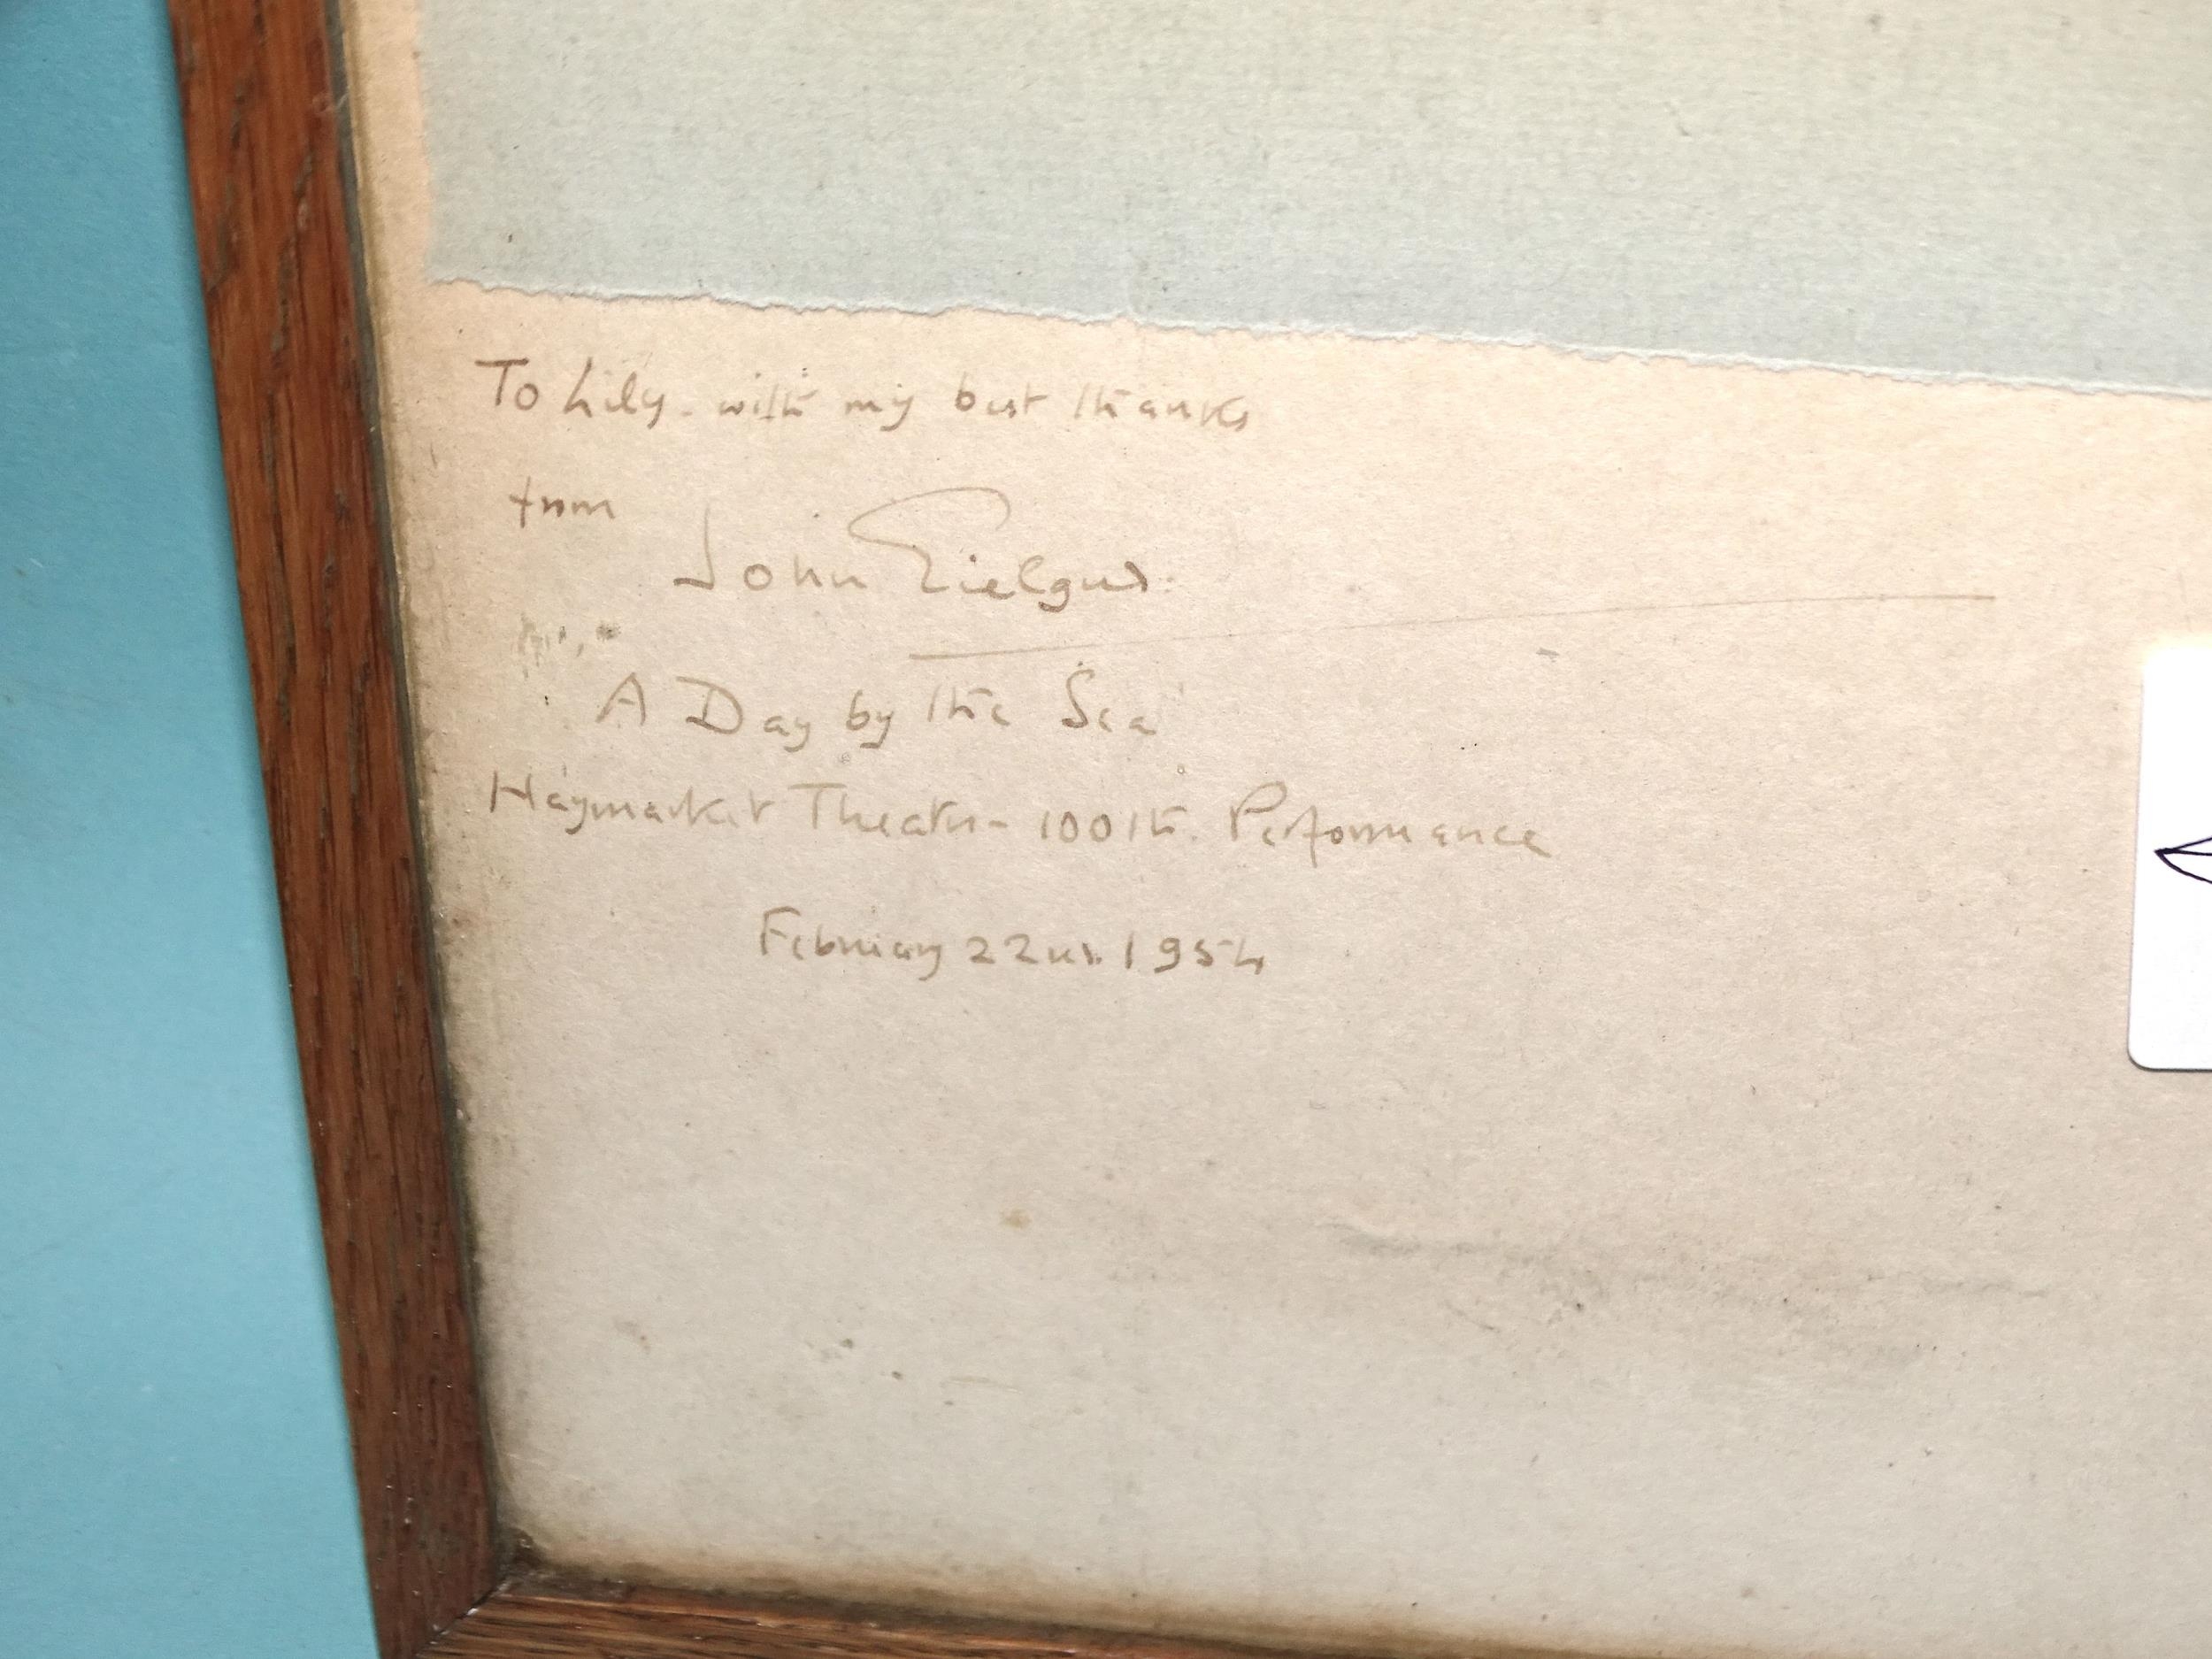 To Lily - with my best thanks
from
John Gielgud.
A Day by the Sea
Haymarket Theatre - 100th. Performance
February 22nd. 1954